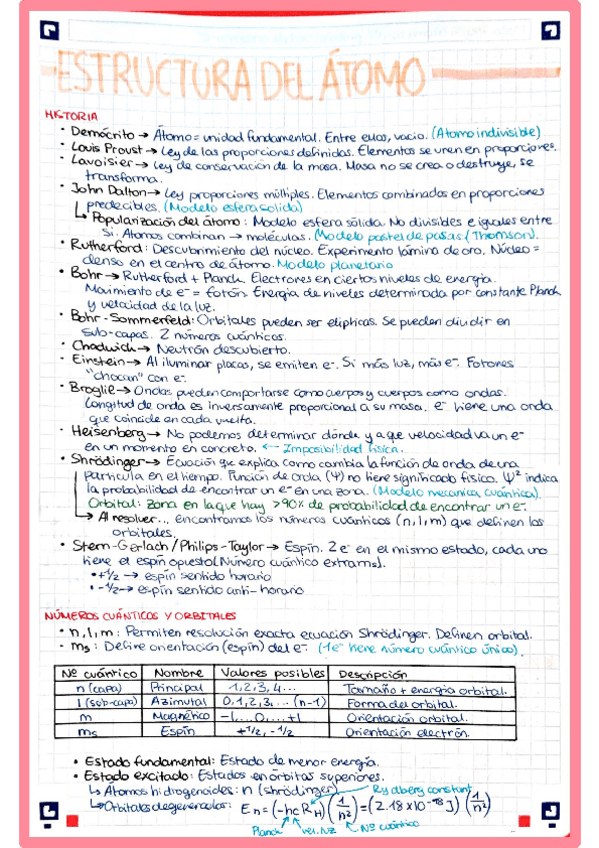 ESTRUCTURA DEL ÁTOMO
HISTORIA
• Demócrito → Átomo = unidad fundamental. Entre ellos, vacio. (Atomo indivisible)
• Louis Proust → Ley de las proporciones definidas. Elementos se unen en proporciones.
• Lavoisier → Ley de conservación de la masa. Masa no se crea o destruye, se
transforma.
• John Dalton → Ley proporciones múltiples. Elementos combinados en proporciones
predecibles. (Modelo esfera solida)
↳ Popularización del átomo: Modelo esfera sólida. No divisibles e iguales entre
si. Atomos combinan → moléculas. (Modelo pastel de pasas (Thomson).
• Rutherford: Descubrimiento del núcleo. Experimento lámina de oro. Núcleo =
denso en el centro de átomo. Modelo planetario
• Bohr → Rutherford + Planck. Electrones en ciertos niveles de energía.
Movimiento de e⁻ = fotón. Energía de niveles determinada por constante Planck
y velocidad de la luz.
• Bohr-Sommerfeld: Orbitales pueden ser elípticas. Se pueden dividir en
sub-capas. 2 números cuánticos.
• Chadwich → Neutrón descubierto.
• Einstein → Al iluminar placas, se emiten e⁻. Si más luz, más e⁻. Fotones
"chocan" con e⁻
• Broglie → Ondas pueden comportarse como cuerpos y cuerpos como ondas.
Longitud de onda es inversamente proporcional a su masa. e⁻ tiene una onda
que coincide en cada vuelta.
• Heisenberg → No podemos determinar dónde y a que velocidad va un e⁻
en un momento en concreto. ← Imposibilidad física.
• Shrödinger → Ecuación que explica como cambia la función de onda de una
partícula en el tiempo. Función de onda (Ψ) no tiene significado físico. Ψ² indica
la probabilidad de encontrar un e⁻ en una zona. (Modelo mecanica cuántica).
Orbital: zona en la que hay >90% de probabilidad de encontrar un e⁻.
↳ Al resolver... encontramos los números cuánticos (n, l, m) que definen los
orbitales.
• Stern-Gerlach / Philips-Taylor → Espín. 2 e⁻ en el mismo estado, cada uno
tiene el espín opuesto (Número cuántico extra ms).
• +1/2 → espín sentido horario
• -1/2 → espín sentido anti-horario
NÚMEROS CUÁNTICOS Y ORBITALES
• n, l, m: Permiten resolución exacta ecuación Shrödinger. Definen orbital.
• ms: Define orientación (espín) del e⁻. (1e⁻ tiene número cuántico único).
Nº cuántico Nombre Valores posibles Descripción
n (capa) Principal 1, 2, 3, 4... Tamaño + energía orbital.
l (sub-capa) Azimutal 0, 1, 2, 3, ... (n-1) Forma del orbital.
m Magnético -l, ... 0, ... +l Orientación orbital.
ms Espín +1/2, -1/2 Orientación electrón.
• Estado fundamental: Estado de menor energía.
• Estado excitado: Estados en órbitas superiores.
↳ Atomos hidrogenoides: n (shrödinger) Rydberg constant
↳ Orbitales degenerados: En = (-hc RH) (1/n²) = (2.18 x 10⁻¹⁸ J) (1/n²)
Planck vel. luz Nº cuántico